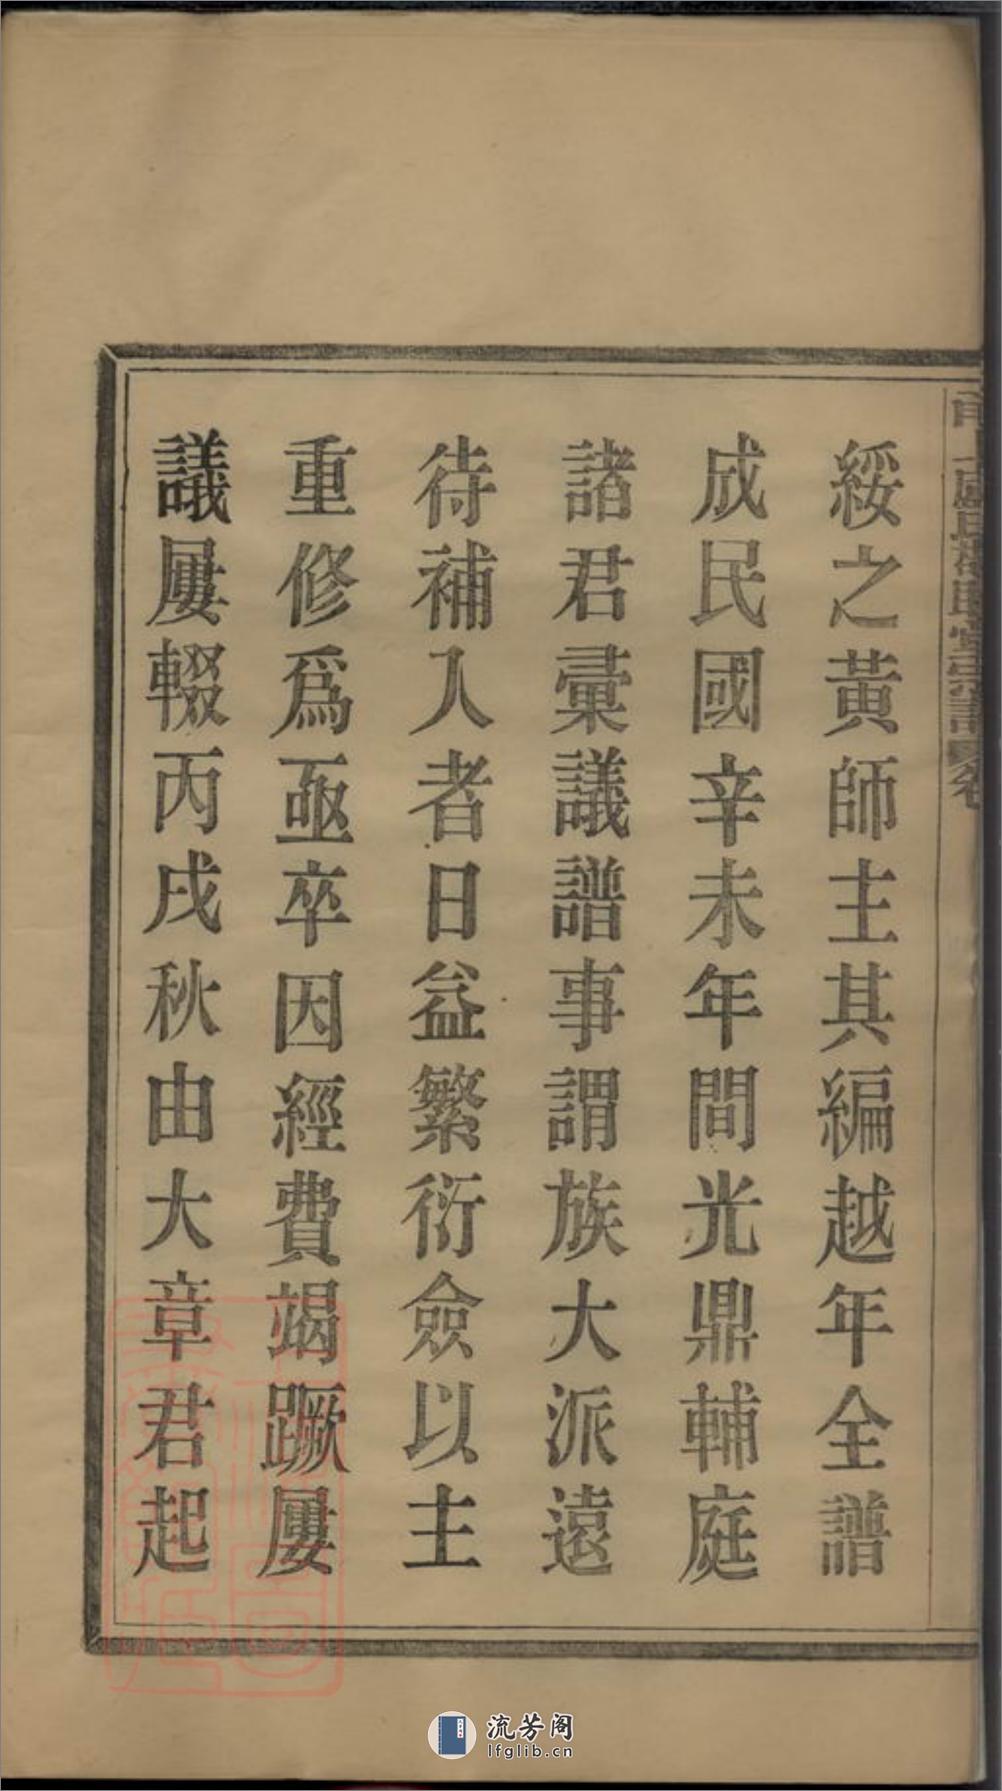 綏之黃師主其編越年全譜
成民國辛未年間光鼎輔庭
諸君彙議譜事謂族大派遠
待補入者日益繁衍僉以主
重修爲亟卒因經費竭蹶屢
議屢輟丙戌秋由大章君起
流芳阁
lfglib.cn